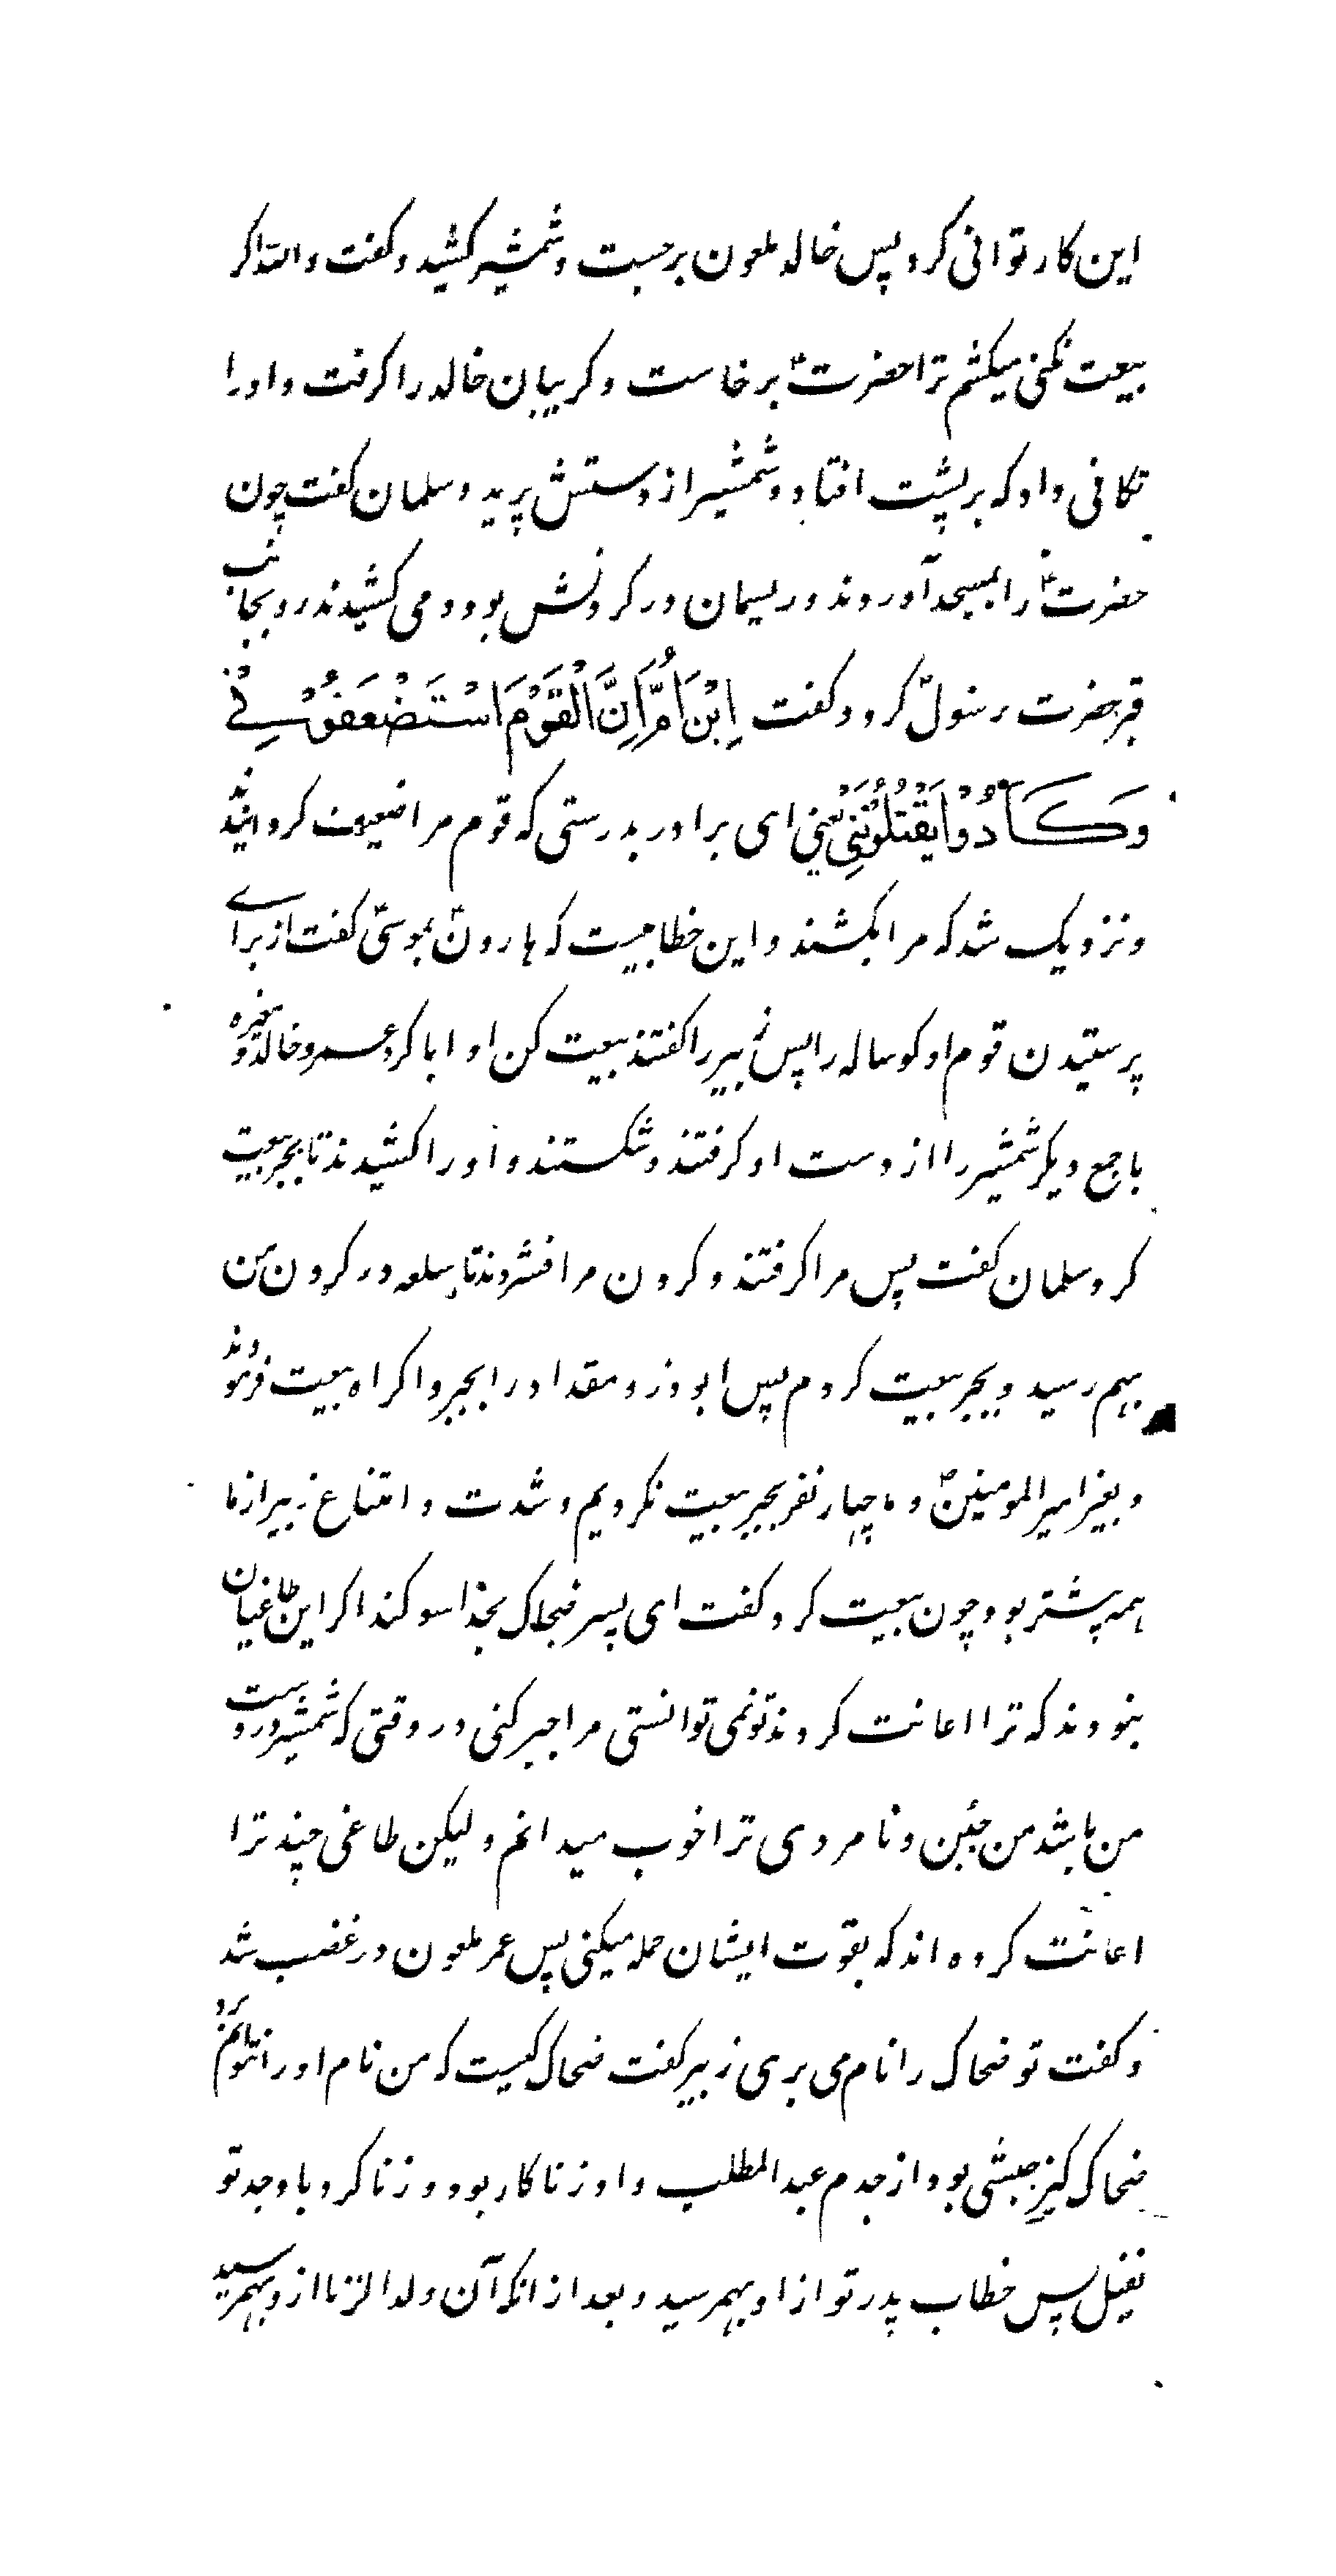 این کار توانی کرد پس خالد ملعون برجست و شمشیر کشید و کفت والله اکر
بیعت نکنی میکشم ترا حضرت ع برخاست و کریبان خالد را کرفت و او را
تکانی داد که بر پشت افتاد و شمشیر از دستش پرید و سلمان کفت چون
حضرت ع را بمسجد آوردند و ریسمان در کردنش بود و می کشیدند رو بجانب
قبر حضرت رسول ص کرد و کفت اِبْنَ اُمَّ اِنَّ الْقَوْمَ اسْتَضْعَفُوْنِیْ
وَکَادُوْا یَقْتُلُوْنَنِیْ یعنی ای برادر بدرستی که قوم مرا ضعیف کردانیدند
و نزدیک شد که مرا بکشند و این خطابیست که هارون ع بموسی ع کفت از برای
پرستیدن قوم او کوساله را پس زبیر را کفتند بیعت کن او ابا کرد عمر و خالد و مغیره
با جمع دیکر شمشیر را از دست او کرفتند و شکستند و او را کشیدند تا بجبر بیعت
کرد سلمان کفت پس مرا کرفتند و کردن مرا فشردند تا سلعه در کردن من
بهم رسید و بجبر بیعت کردم پس ابوذر و مقداد را بجبر و اکراه بیعت فرمودند
و بغیر امیرالمومنین ع و ما چهار نفر بجبر بیعت نکردیم و شدت و امتناع زبیر از ما
همه بیشتر بود چون بیعت کرد کفت ای پسر ضحاک بخدا سوکند اکر این طاغیان
نبودند که ترا اعانت کردند تو نمی توانستی مرا جبر کنی در وقتی که شمشیر در دست
من باشد من جبن و نامردی ترا خوب میدانم ولیکن طاغی چند ترا
اعانت کرده اند که بقوّت ایشان حمله میکنی پس عمر ملعون در غضب شد
و کفت تو ضحاک را نام می بری زبیر کفت ضحاک کیست که من نام او را نتوانم برد
ضحاک کنیز حبشی بود از جدم عبدالمطلب و او زناکار بود و زنا کرد با و جد تو
نفیل پس خطاب پدر تو از او بهمرسید و بعد از انکه آن ولدالزنا از و بهمرسید